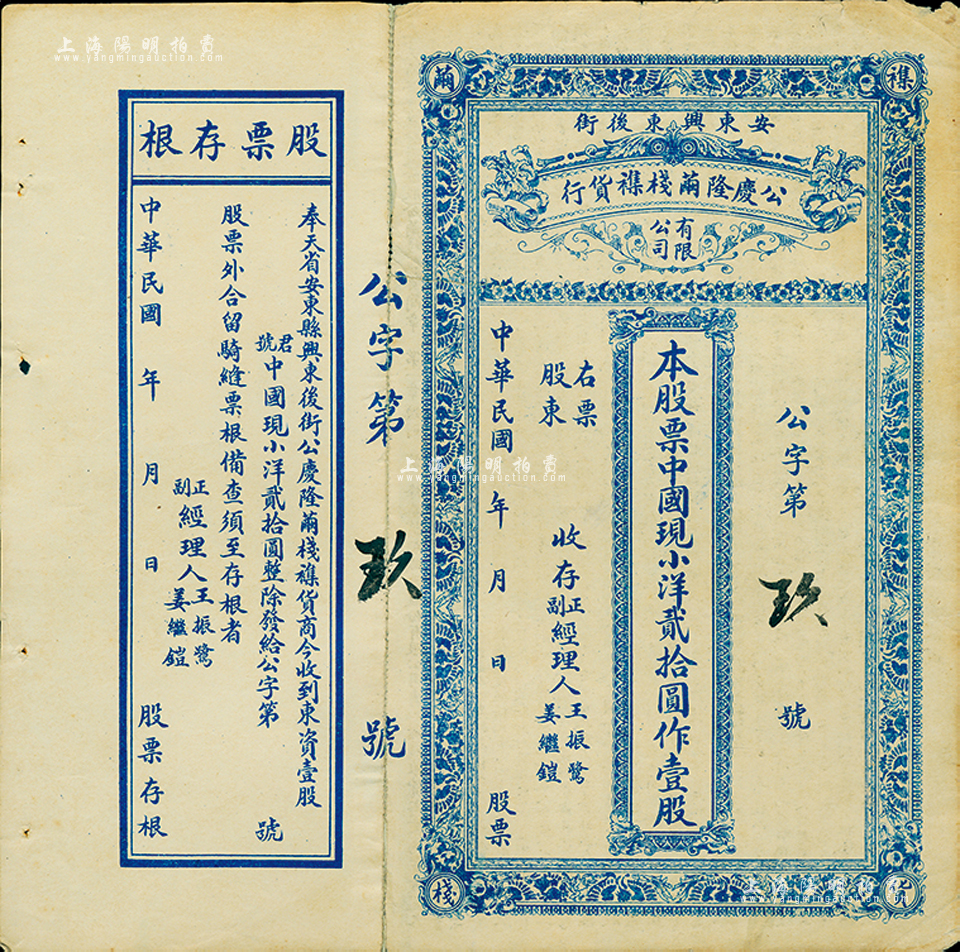 上海陽明拍賣
www.yangmingauction.com
繭
襍
安東興東後街
公慶隆繭棧襍貨行
有限公司
公字第 玖 號
本股票中國現小洋貳拾圓作壹股
右票
股東 收存
正副經理人 王振鷺 姜繼鎧
中華民國 年 月 日 股票
棧
貨
公字第 玖 號
股票存根
奉天省安東縣興東後街公慶隆繭棧襍貨商今收到東資壹股
君號中國現小洋貳拾圓整除發給公字第 號
股票外合留騎縫票根備查須至存根者
正副經理人 王振鷺 姜繼鎧
中華民國 年 月 日 股票存根
上海陽明拍賣
www.yangmingauction.com
上海陽明拍賣
www.yangmingauction.com